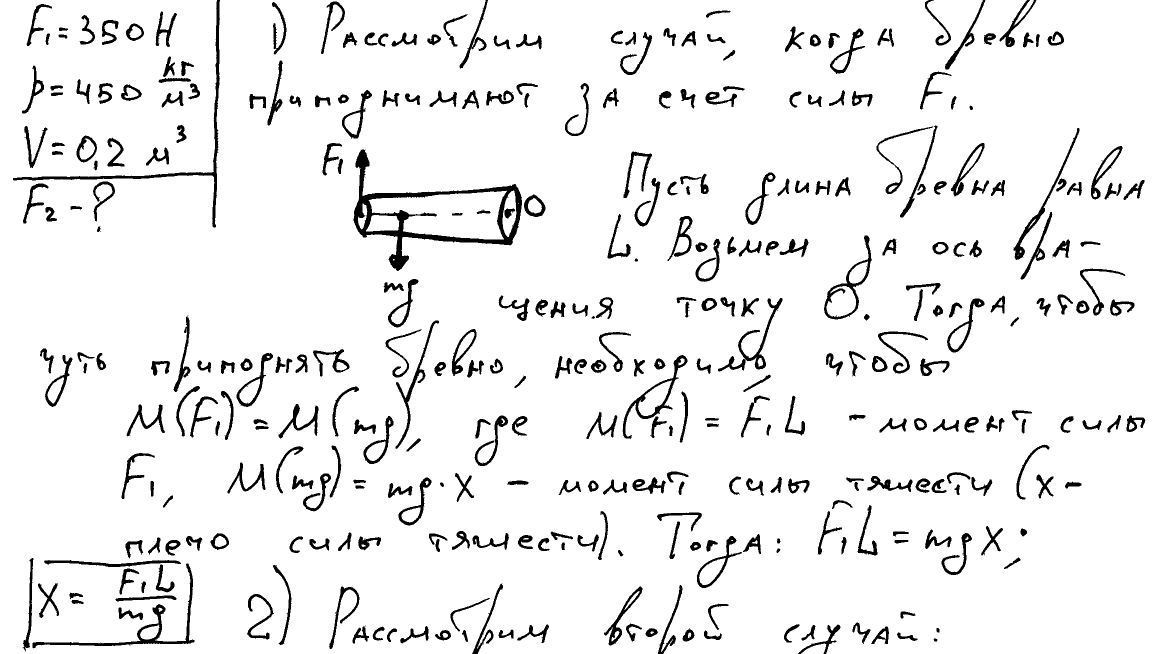 F₁=350Н
ρ=450 кг/м³
V=0,2 м³
F₂-?
1) Рассмотрим случай, когда бревно
приподнимают за счет силы F₁.
F₁
O
mg
Пусть длина бревна равна
L. Возьмем за ось вра-
щения точку O. Тогда, чтобы
чуть приподнять бревно, необходимо, чтобы
M(F₁)=M(mg), где M(F₁)=F₁L - момент силы
F₁, M(mg)=mg·x - момент силы тяжести (x-
плечо силы тяжести). Тогда: F₁L=mgx;
x= F₁L/mg
2) Рассмотрим второй случай: